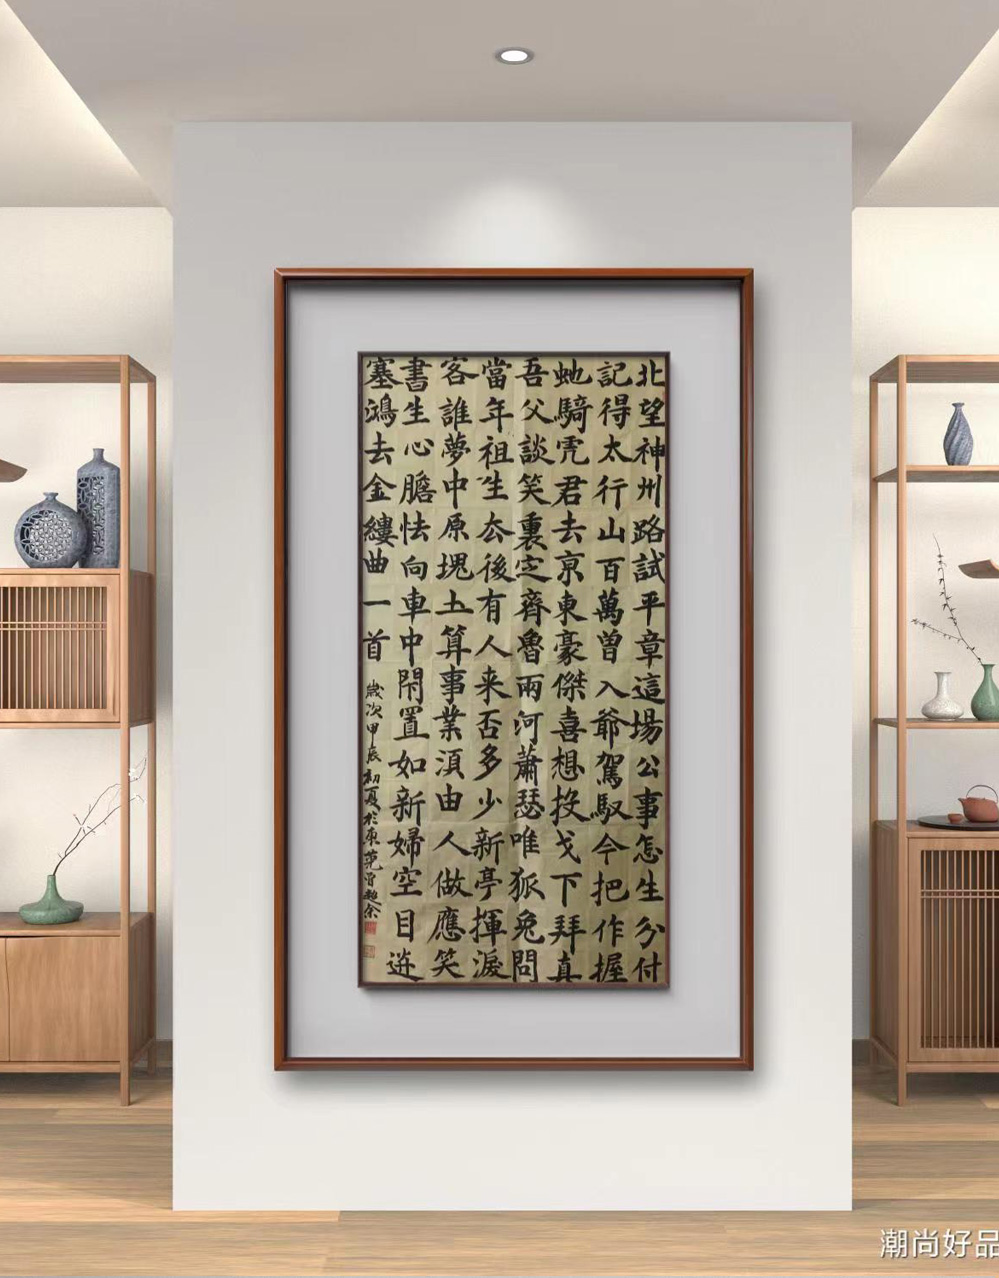 北望神州路試平章這場公事怎生分付
記得太行山百萬曾入爺駕馭今把作握
虵騎虎君去京東豪傑喜想投戈下拜真
吾父談笑裏定齊魯兩河蕭瑟唯狐兔問
當年祖生去後有人来否多少新亭揮淚
客誰夢中原塊土算事業須由人做應笑
書生心膽怯向車中閑置如新婦空目送
塞鴻去金縷曲一首
歲次甲辰初夏於東莞
潮尚好品